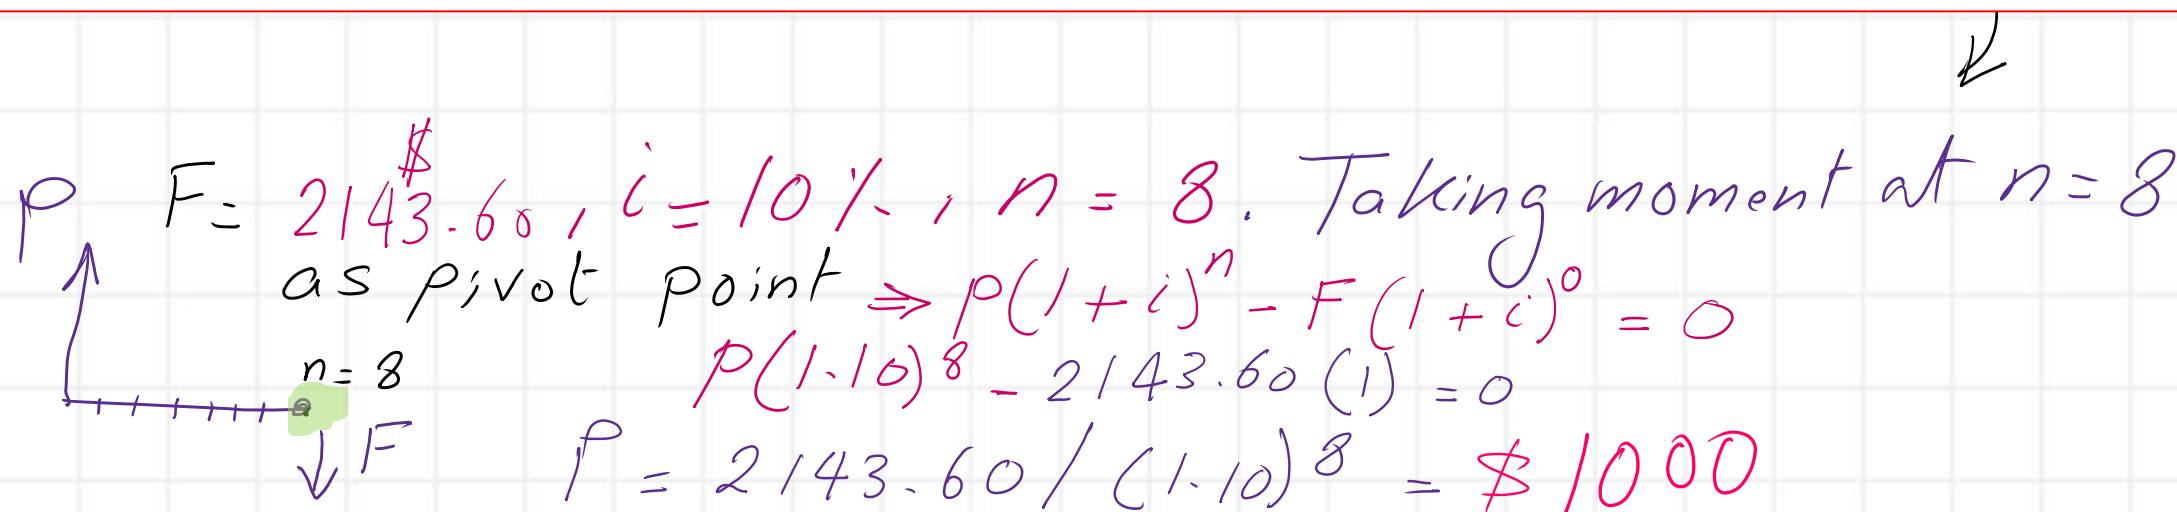 P F = 2143.60 $, i = 10%, n = 8. Taking moment at n = 8
as pivot point ⇒ P(1 + i)^n - F(1 + i)^0 = 0
n = 8 P(1.10)^8 - 2143.60 (1) = 0
F P = 2143.60 / (1.10)^8 = $1000